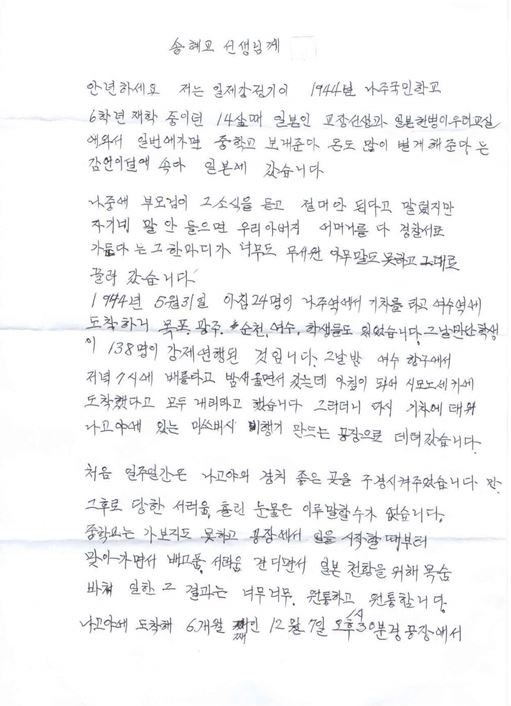 송혜교 선생님께
안녕하세요 저는 일제강점기인 1944년 나주국민학교
6학년 재학 중이던 14살때 일본인 교장선생과 일본헌병이 우리교실
에와서 일번에가면 중학교 보내준다 돈도 많이 벌게 해준다 는
감언이설에 속아 일본에 갔습니다
나중에 부모님이 그소식을 듣고 절대안 된다고 말렸지만
자기네 말 안 들으면 우리아버지 어머니를 다 경찰서로
가둔다 는 그 한마디가 너무도 무서워 아무말도 못하고 그대로
끌려 갔습니다
1944년 5월31일 아침 24명이 나주역에서 기차를 타고 여수역에
도착하니 목포, 광주, 순천, 여수, 학생들도 있었습니다 그날만난 학생
이 138명이 강제연행된 것입니다. 그날밤 여수 항구에서
저녁 7시에 배를타고 밤새울면서 갔는데 아침이 되어 시모노세키에
도착했다고 모두 내리라고 했습니다 그러더니 다시 기차에 태워
나고야에 있는 미쓰비시 비행기 만드는 공장으로 데려갔습니다.
처음 일주일간은 나고야의 경치 좋은 곳을 구경시켜주었습니다 만
그후로 당한 서러움 흘린 눈물은 이루말할수가 없습니다.
중학교는 가보지도 못하고 공장에서 일을 시작할 때부터
맞아가면서 배고픔, 서러움 견디면서 일본 천황을 위해 목숨
바쳐 일한 그 결과는 너무너무 원통하고 원통합니다.
나고야에 도착해 6개월 째인 12월 7일 오후 1시30분경 공장에서